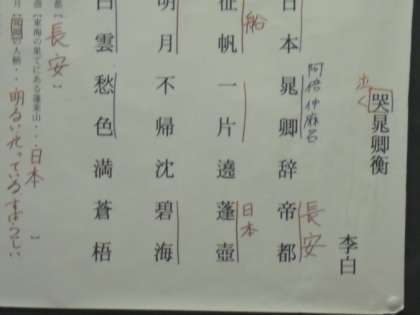 哭晁卿衡
泣く
李白
日本晁卿辞帝都
阿倍仲麻呂
長安
征帆一片遶蓬壺
船
日本
明月不帰沈碧海
白雲愁色満蒼梧
都【長安】
【東海の果てにある蓬莱山・・日本】
月【
の人柄・・明るい光っているすばらしい